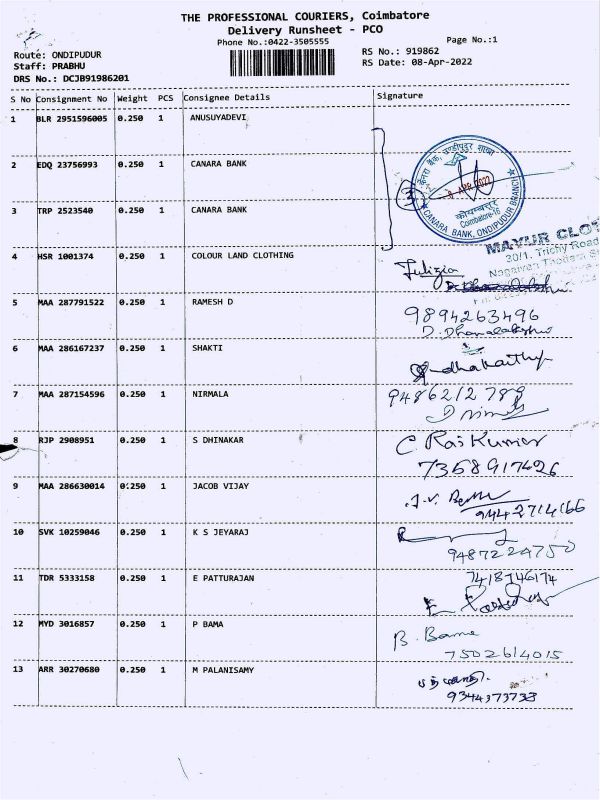 THE PROFESSIONAL COURIERS, Coimbatore
Delivery Runsheet - PCO
Phone No.:0422-3505555
Page No.:1
Route: ONDIPUDUR
Staff: PRABHU
DRS No.: DCJB91986201
RS No.: 919862
RS Date: 08-Apr-2022
S No Consignment No Weight PCS Consignee Details Signature
1 BLR 2951596005 0.250 1 ANUSUYADEVI
2 EDQ 23756993 0.250 1 CANARA BANK
केनरा बैंक,
APR 2022
कोयम्बत्तूर
Coimbatore-16
CANARA BANK, ONDIPUDUR BRANCH
3 TRP 2523540 0.250 1 CANARA BANK
MAYUR CLOT
30/1, Trichy Road
4 HSR 1001374 0.250 1 COLOUR LAND CLOTHING
5 MAA 287791522 0.250 1 RAMESH D 9894263496
D. Dhanalakshmi
6 MAA 286167237 0.250 1 SHAKTI
7 MAA 287154596 0.250 1 NIRMALA 9486212789
8 RJP 2908951 0.250 1 S DHINAKAR C. Raj Kumar
7358917426
9 MAA 286630014 0.250 1 JACOB VIJAY
9442714166
10 SVK 10259046 0.250 1 K S JEYARAJ
9487224750
11 TDR 5333158 0.250 1 E PATTURAJAN 7418746174
12 MYD 3016857 0.250 1 P BAMA B. Bama
7502614015
13 ARR 30270680 0.250 1 M PALANISAMY
9344373733